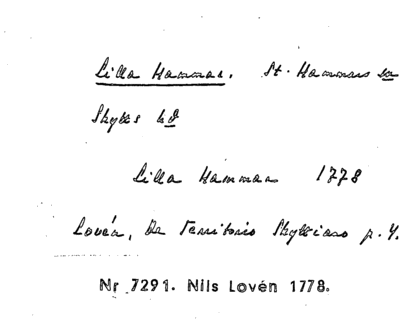 Lilla Hammar. St. Hammars sn
Skytts hd
Lilla Hammar 1778
Lovén, De Territorio Skyttiano p. 4.
Nr 7291. Nils Lovén 1778.